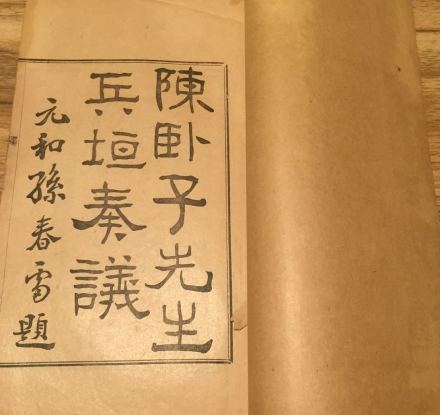 陳卧子先生
兵垣奏議
元和孫春雷題